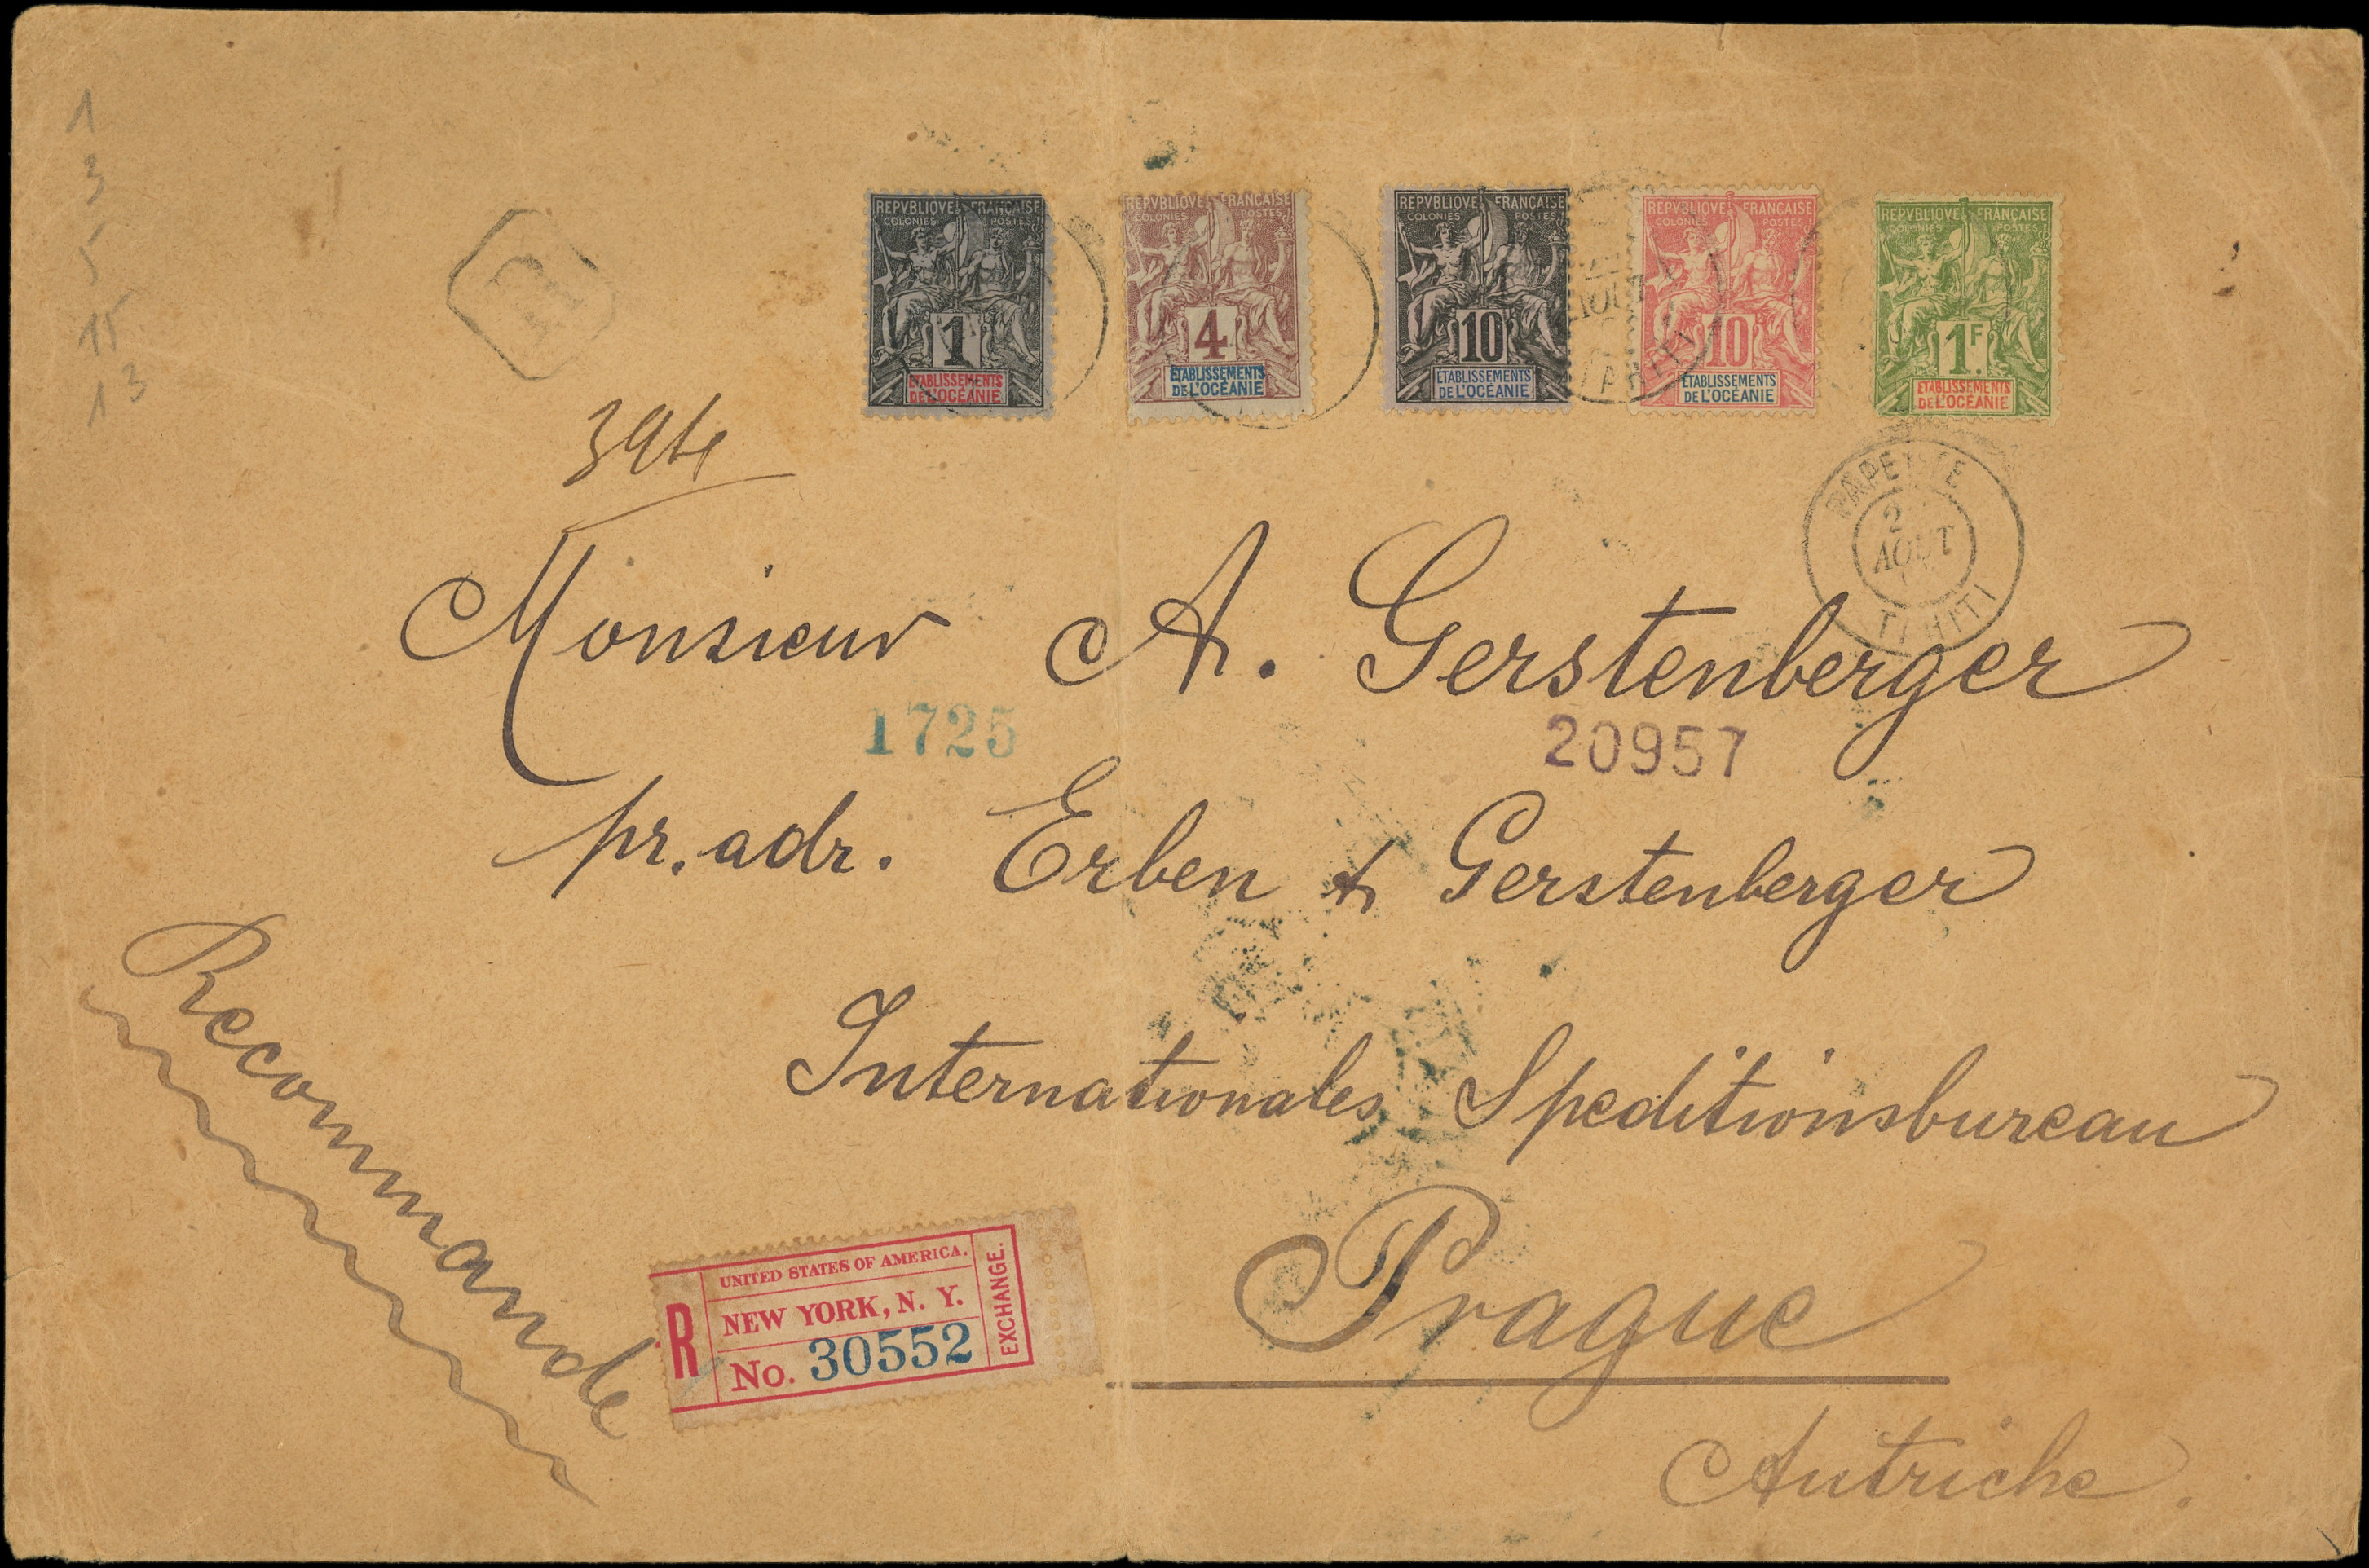 1
3
5
15
13
R
394
REPVBLIQVE FRANÇAISE
COLONIES POSTES
1
ÉTABLISSEMENTS
DE L'OCÉANIE
REPVBLIQVE FRANÇAISE
COLONIES POSTES
4
ÉTABLISSEMENTS
DE L'OCÉANIE
REPVBLIQVE FRANÇAISE
COLONIES POSTES
10
ÉTABLISSEMENTS
DE L'OCÉANIE
AOUT
REPVBLIQVE FRANÇAISE
COLONIES POSTES
10
ÉTABLISSEMENTS
DE L'OCÉANIE
REPVBLIQVE FRANÇAISE
COLONIES POSTES
1F.
ÉTABLISSEMENTS
DE L'OCÉANIE
PAPEETE
2
AOUT
TAHITI
Monsieur A. Gerstenberger
1725
20957
pr. adr. Erben & Gerstenberger
Internationales Speditionsbureau
Prague
Autriche.
Recommande
R
UNITED STATES OF AMERICA.
NEW YORK, N. Y.
No. 30552
EXCHANGE.